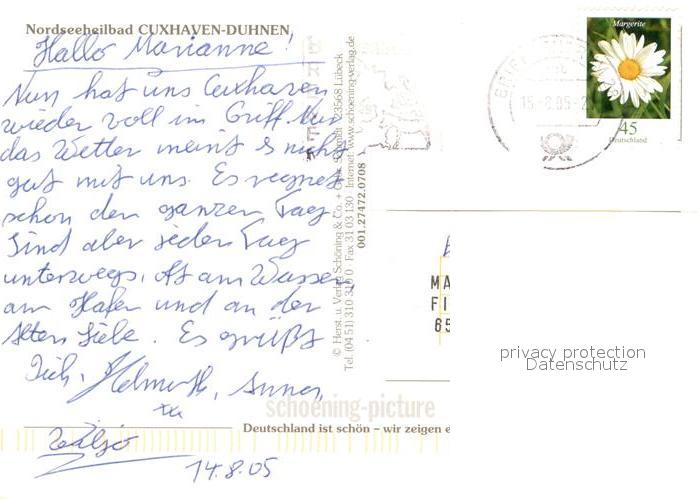 Nordseeheilbad CUXHAVEN-DUHNEN
Hallo Marianne!
Nun hat uns Cuxhaven
wieder voll im Griff. Nur
das Wetter meint es nicht
gut mit uns. Es regnet
schon den ganzen Tag
Sind aber jeden Tag
unterwegs. Oft am Wasser,
am Hafen und an der
Alten Liebe. Es grüßt
Dich, Helmuth, Anna,
14.8.05
© Herst. u. Verlag Schöning & Co. + Gebr. Schmidt · 23568 Lübeck
Tel. (04 51) 310 310 Fax 31 03 130 Internet: www.schoening-verlag.de
001.27472.0708
Margerite
45
Deutschland
MA
FI
65
privacy protection
Datenschutz
schoening-picture
Deutschland ist schön – wir zeigen e